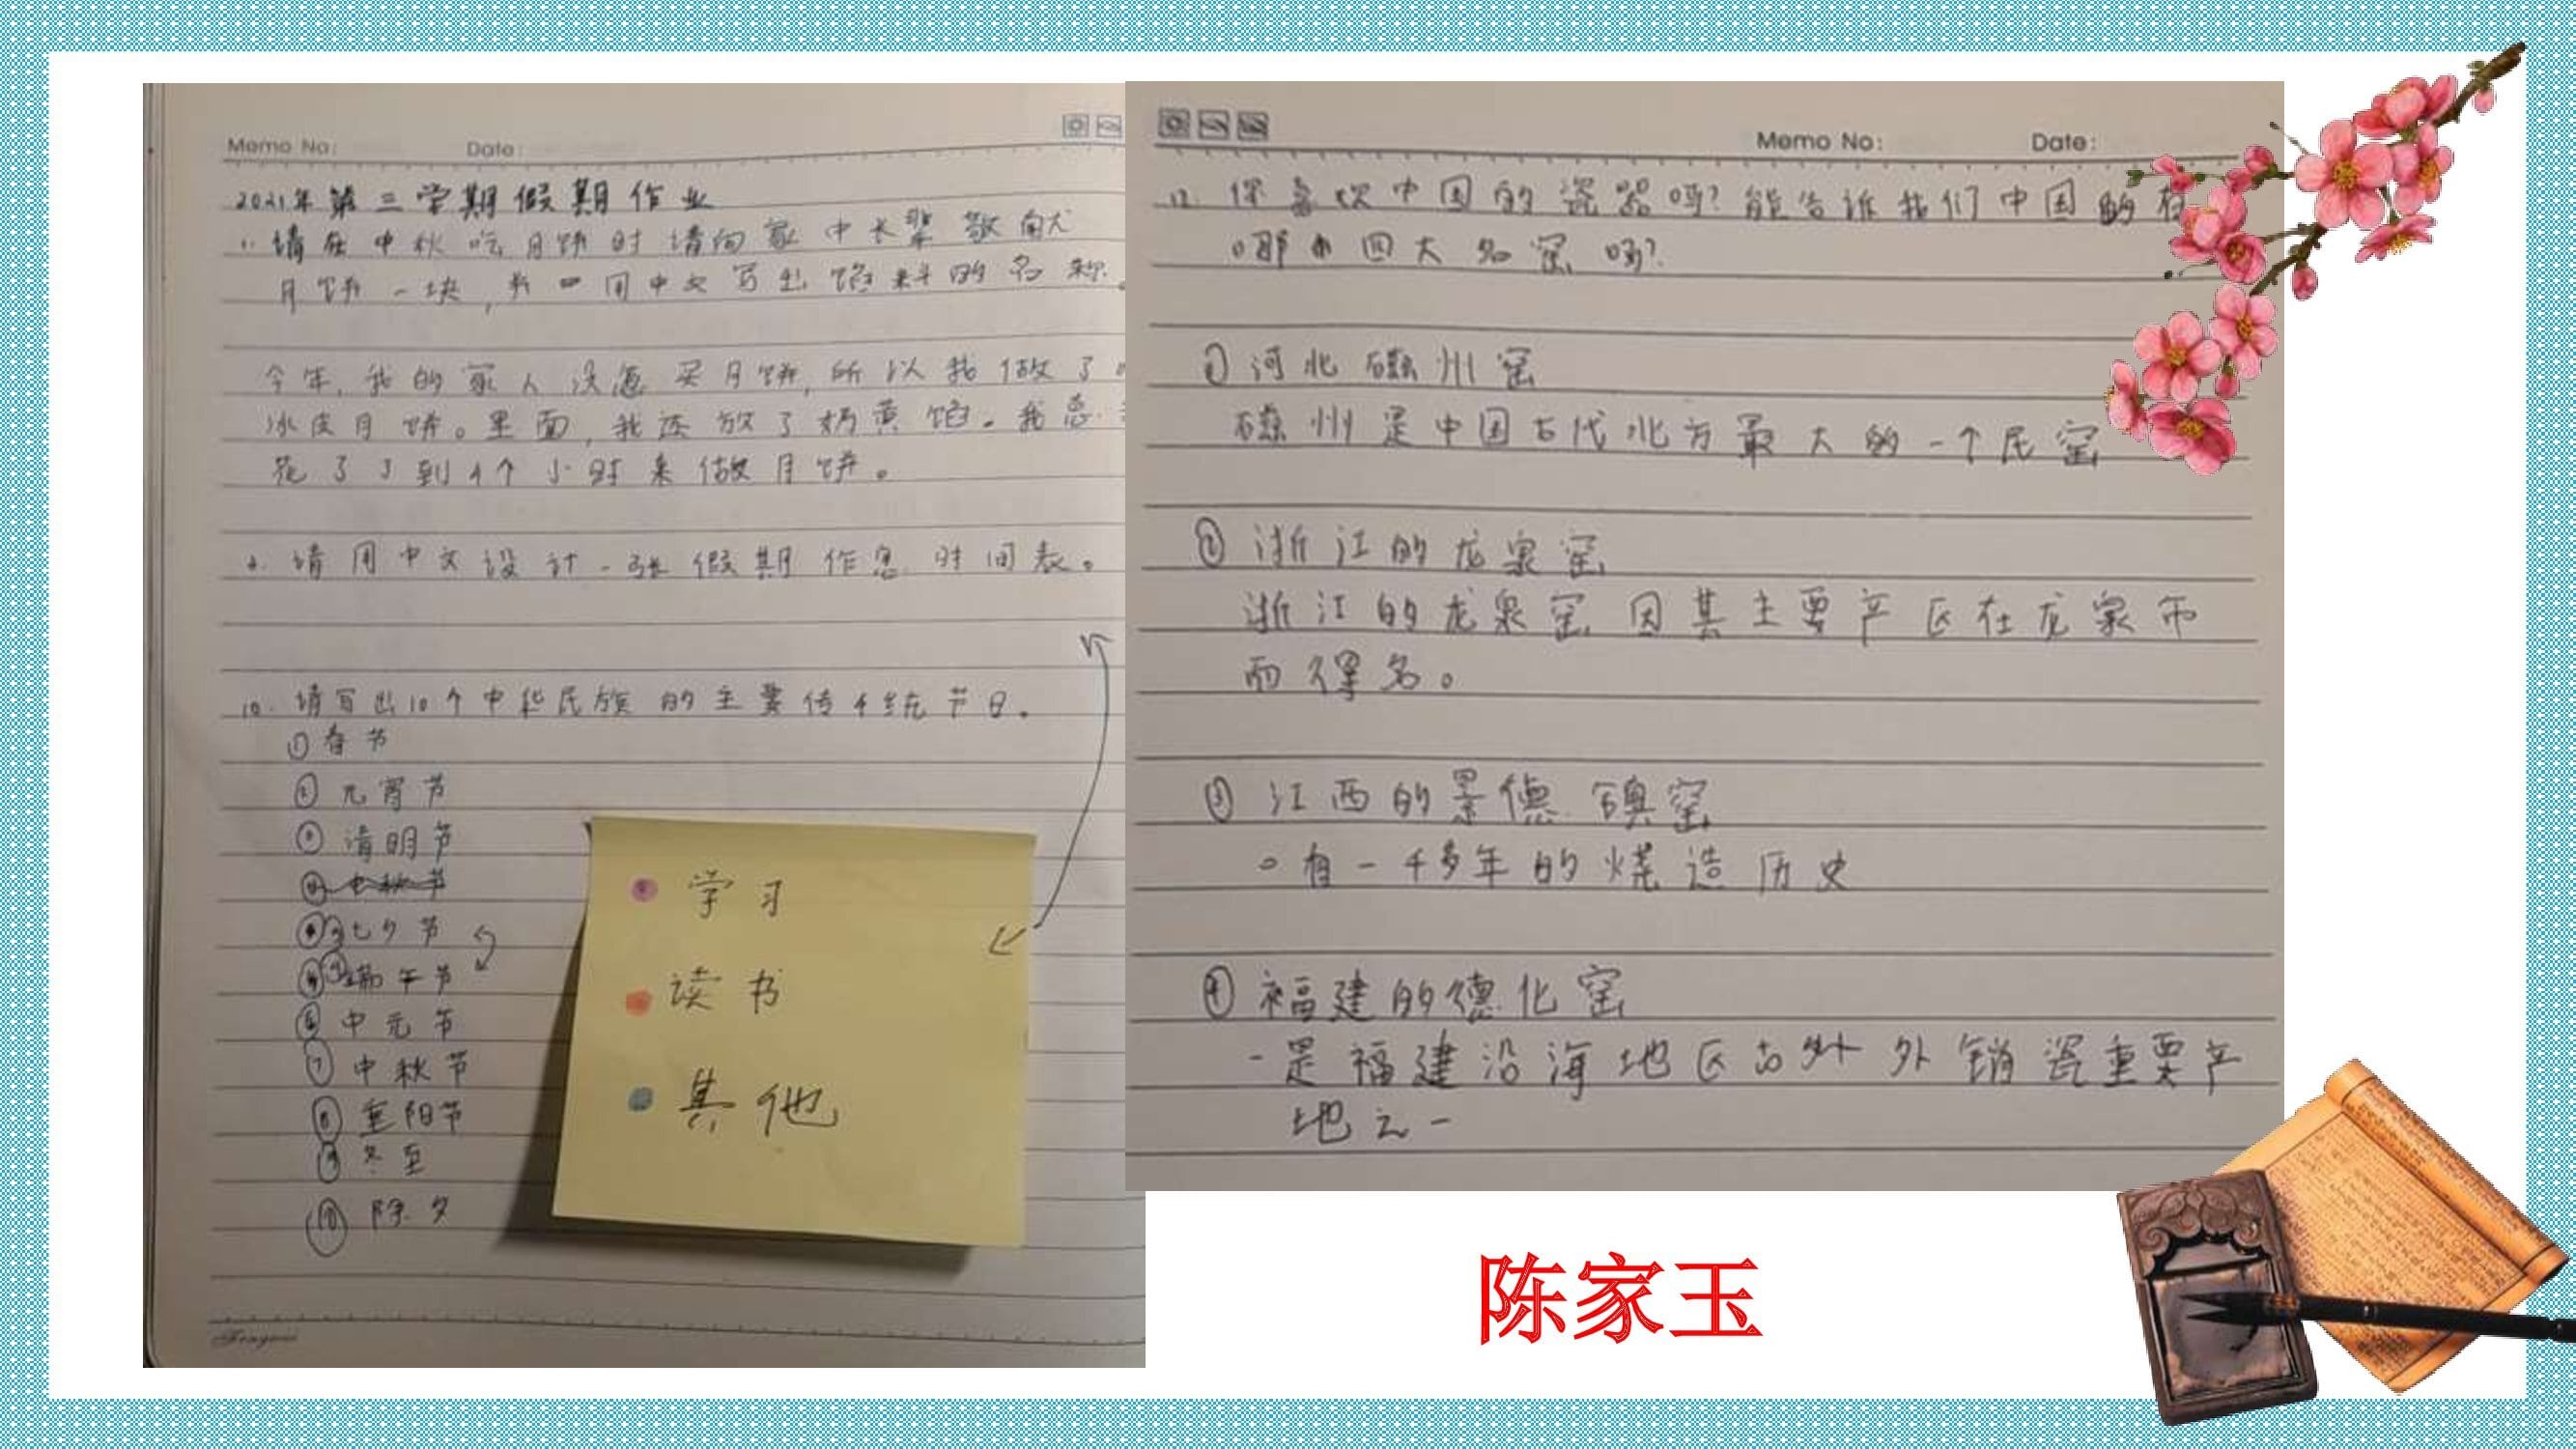 Memo No:
Date:
2021年第三学期假期作业
1. 请在中秋吃月饼时请向家中长辈敬献
月饼一块,并 用中文写出馅料的名称。
今年,我的家人没怎买月饼,所以我做了
冰皮月饼。里面,我还放了奶黄馅。我总
花了3到4个小时来做月饼。
请用中文设计一张假期作息时间表。
10. 请写出10个中华民族的主要传统节日。
① 春节
② 元宵节
③ 清明节
中秋节
七夕节
端午节
⑥ 中元节
⑦ 中秋节
⑧ 重阳节
⑨ 冬至
⑩ 除夕
学习
读书
其他
Memo No:
Date:
12. 你喜欢中国的瓷器吗?能告诉我们中国的有
哪 四大名窑吗?
① 河北磁州窑
磁州是中国古代北方最大的一个民窑
② 浙江的龙泉窑
浙江的龙泉窑因其主要产区在龙泉市
而得名。
③ 江西的景德镇窑
。有一千多年的烧造历史
④ 福建的德化窑
-是福建沿海地区古外外销瓷重要产
地之一
陈家玉